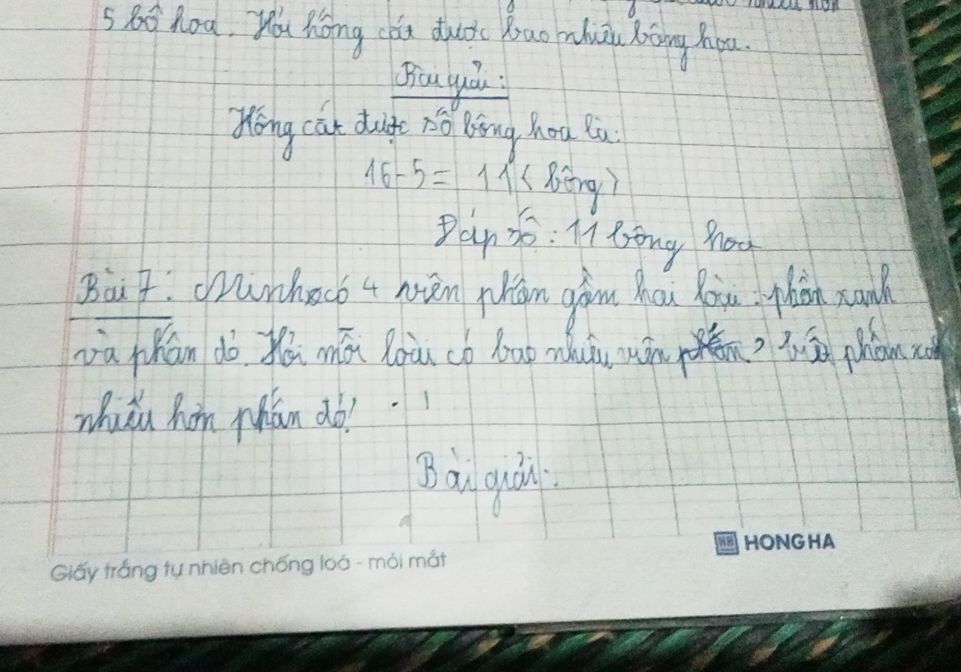 5 bô hoa. Hỏi hồng cắt được bao nhiêu bông hoa.
Bài giải:
Hồng cắt được số bông hoa là:
16-5 = 11 < bông >
Đáp số: 11 bông hoa
Bài 7: Minh có 4 viên phấn gồm hai loại: phấn xanh
và phấn đỏ. Hỏi mỗi loại có bao nhiêu viên phấn? biết phấn
nhiều hơn phấn đỏ!
Bài giải:
HH HONG HA
Giấy trắng tự nhiên chống loá - mỏi mắt